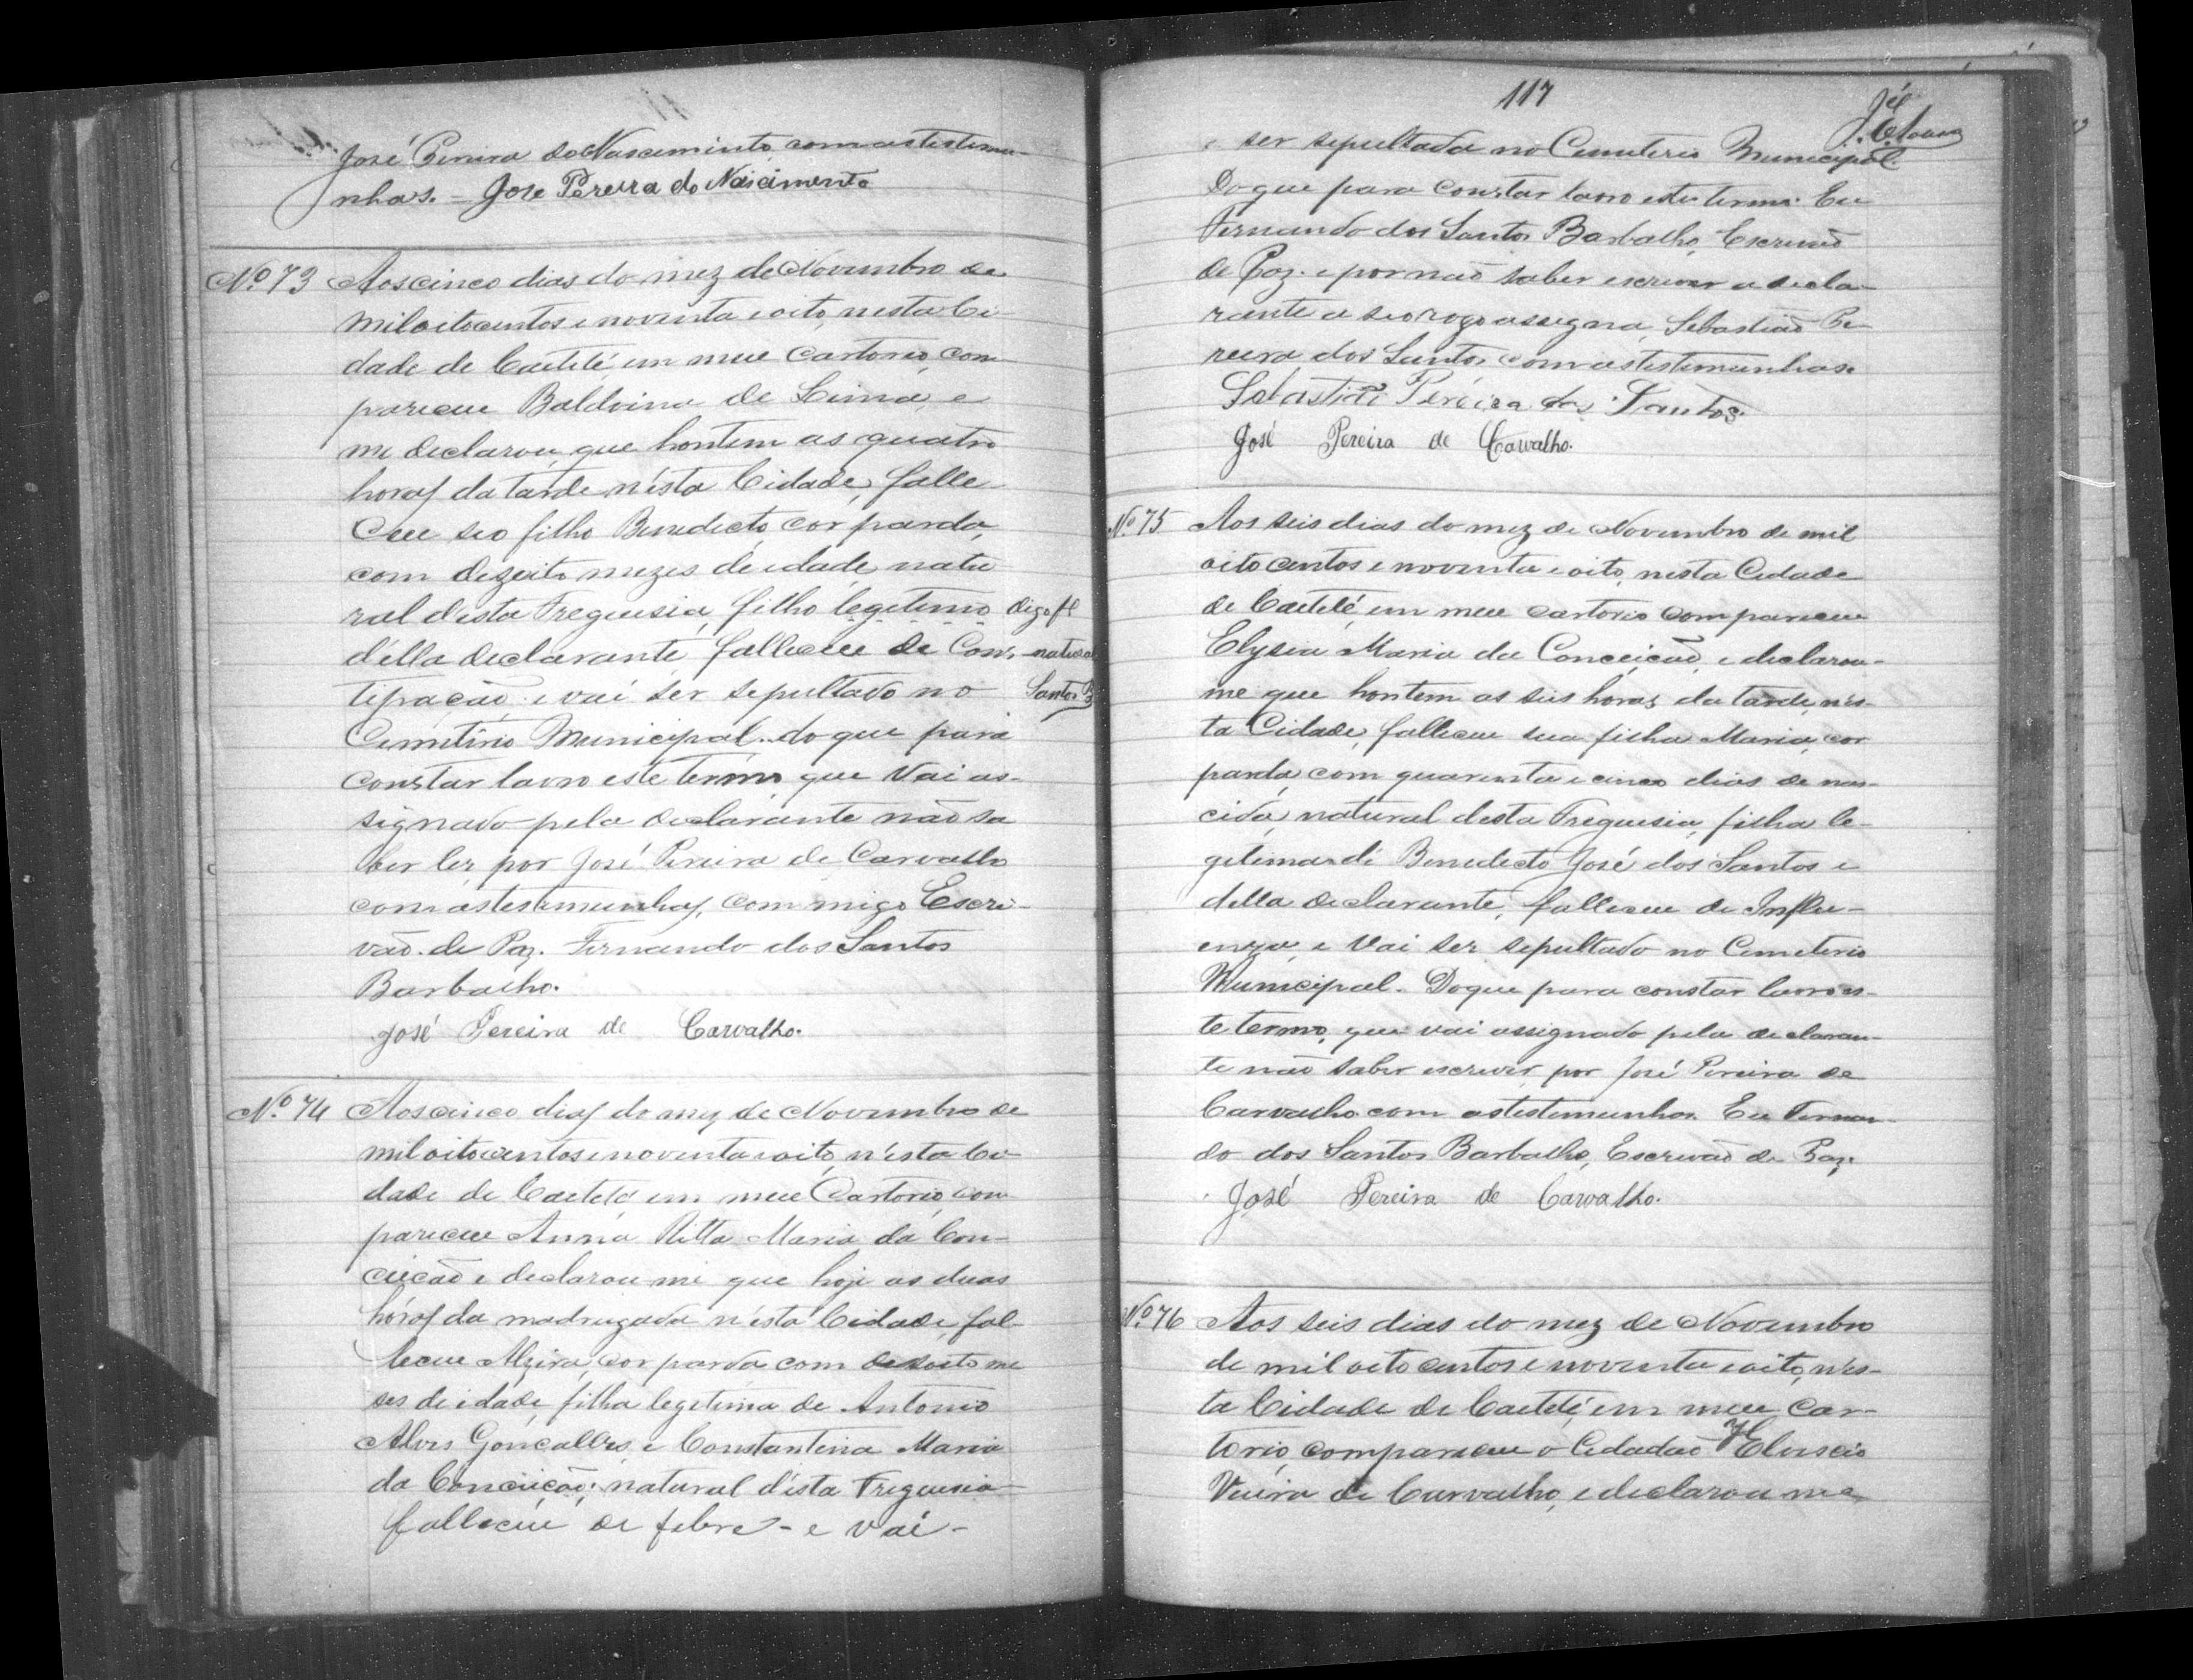 José Pereira do Nascimento com as testemu-
nhas. - Jose Pereira do Nascimento
Nº 73 Aos cinco dias do mez de Novembro de
mil oitocentos e noventa e oito, nesta Ci-
dade de Caetité, em meu Cartorio, com-
pareceu Baldoina de Lima, e
me declarou que hontem as quatro
horas da tarde n'esta Cidade, falle
ceu seo filho Benedicto, cor parda,
com dezoito mezes de idade, natu
ral desta Freguesia, filho legitimo digo fº
d'ella declarante, falleceu de Cons- natural
tipação e vai ser sepultado no Santos B
Cemiterio Municipal. do que para
constar lavro este termo que vai as-
signado pela declarante não sa
ber ler, por José Pereira de Carvalho
com as testemunhas, com migo Escri-
vão de Paz. Fernando dos Santos
Barbalho.
José Pereira de Carvalho.
Nº 74 Aos cinco dias do mez de Novembro de
mil oitocentos e noventa e oito, n'esta Ci-
dade de Caetité em meu Cartorio, com-
pareceu Anna Ritta Maria da Con-
ceição e declarou me que hoje as duas
horas da madrugada n'esta Cidade, fal
leceu Alzira, cor parda com dezoito me
ses de idade, filha legitima de Antonio
Alves Gonçalves e Constantina Maria
da Conceição; natural d'esta Freguesia
falleceu de febre - e vai -
117
ser sepultada no Cemiterio Municipal.
Do que para constar lavro este termo. Eu
Fernando dos Santos Barbalho, Escrivão
de Paz. e por não saber escrever a decla-
rante a seo rogo assigna, Sebastião Pe-
reira dos Santos com as testemunhas.
Sebastião Pereira dos Santos.
José Pereira de Carvalho.
Nº 75 Aos seis dias do mez de Novembro de mil
oito centos e noventa e oito, nesta Cidade
de Caetité, em meu cartorio compareceu
Elysia Maria da Conceição, e declarou-
me que hontem as seis horas da tarde, n'es-
ta Cidade, falleceu sua filha Maria, cor
parda, com quarenta e cinco dias de nas-
cida, natural desta Freguesia, filha le-
gitima de Benedicto José dos Santos e
della declarante, falleceu de Influ-
enza, e vai ser sepultado no Cemiterio
Municipal. Do que para constar lavro es-
te termo, que vai assignado pela declaran-
te não saber escrever, por José Pereira de
Carvalho com as testemunhas. Eu Fernan-
do dos Santos Barbalho, Escrivão de Paz.
José Pereira de Carvalho.
Nº 76 Aos seis dias do mez de Novembro
de mil oito centos e noventa e oito, n'es-
ta Cidade de Caetité, em meu Car-
torio, compareceu o Cidadão
Vieira de Carvalho, e declarou me